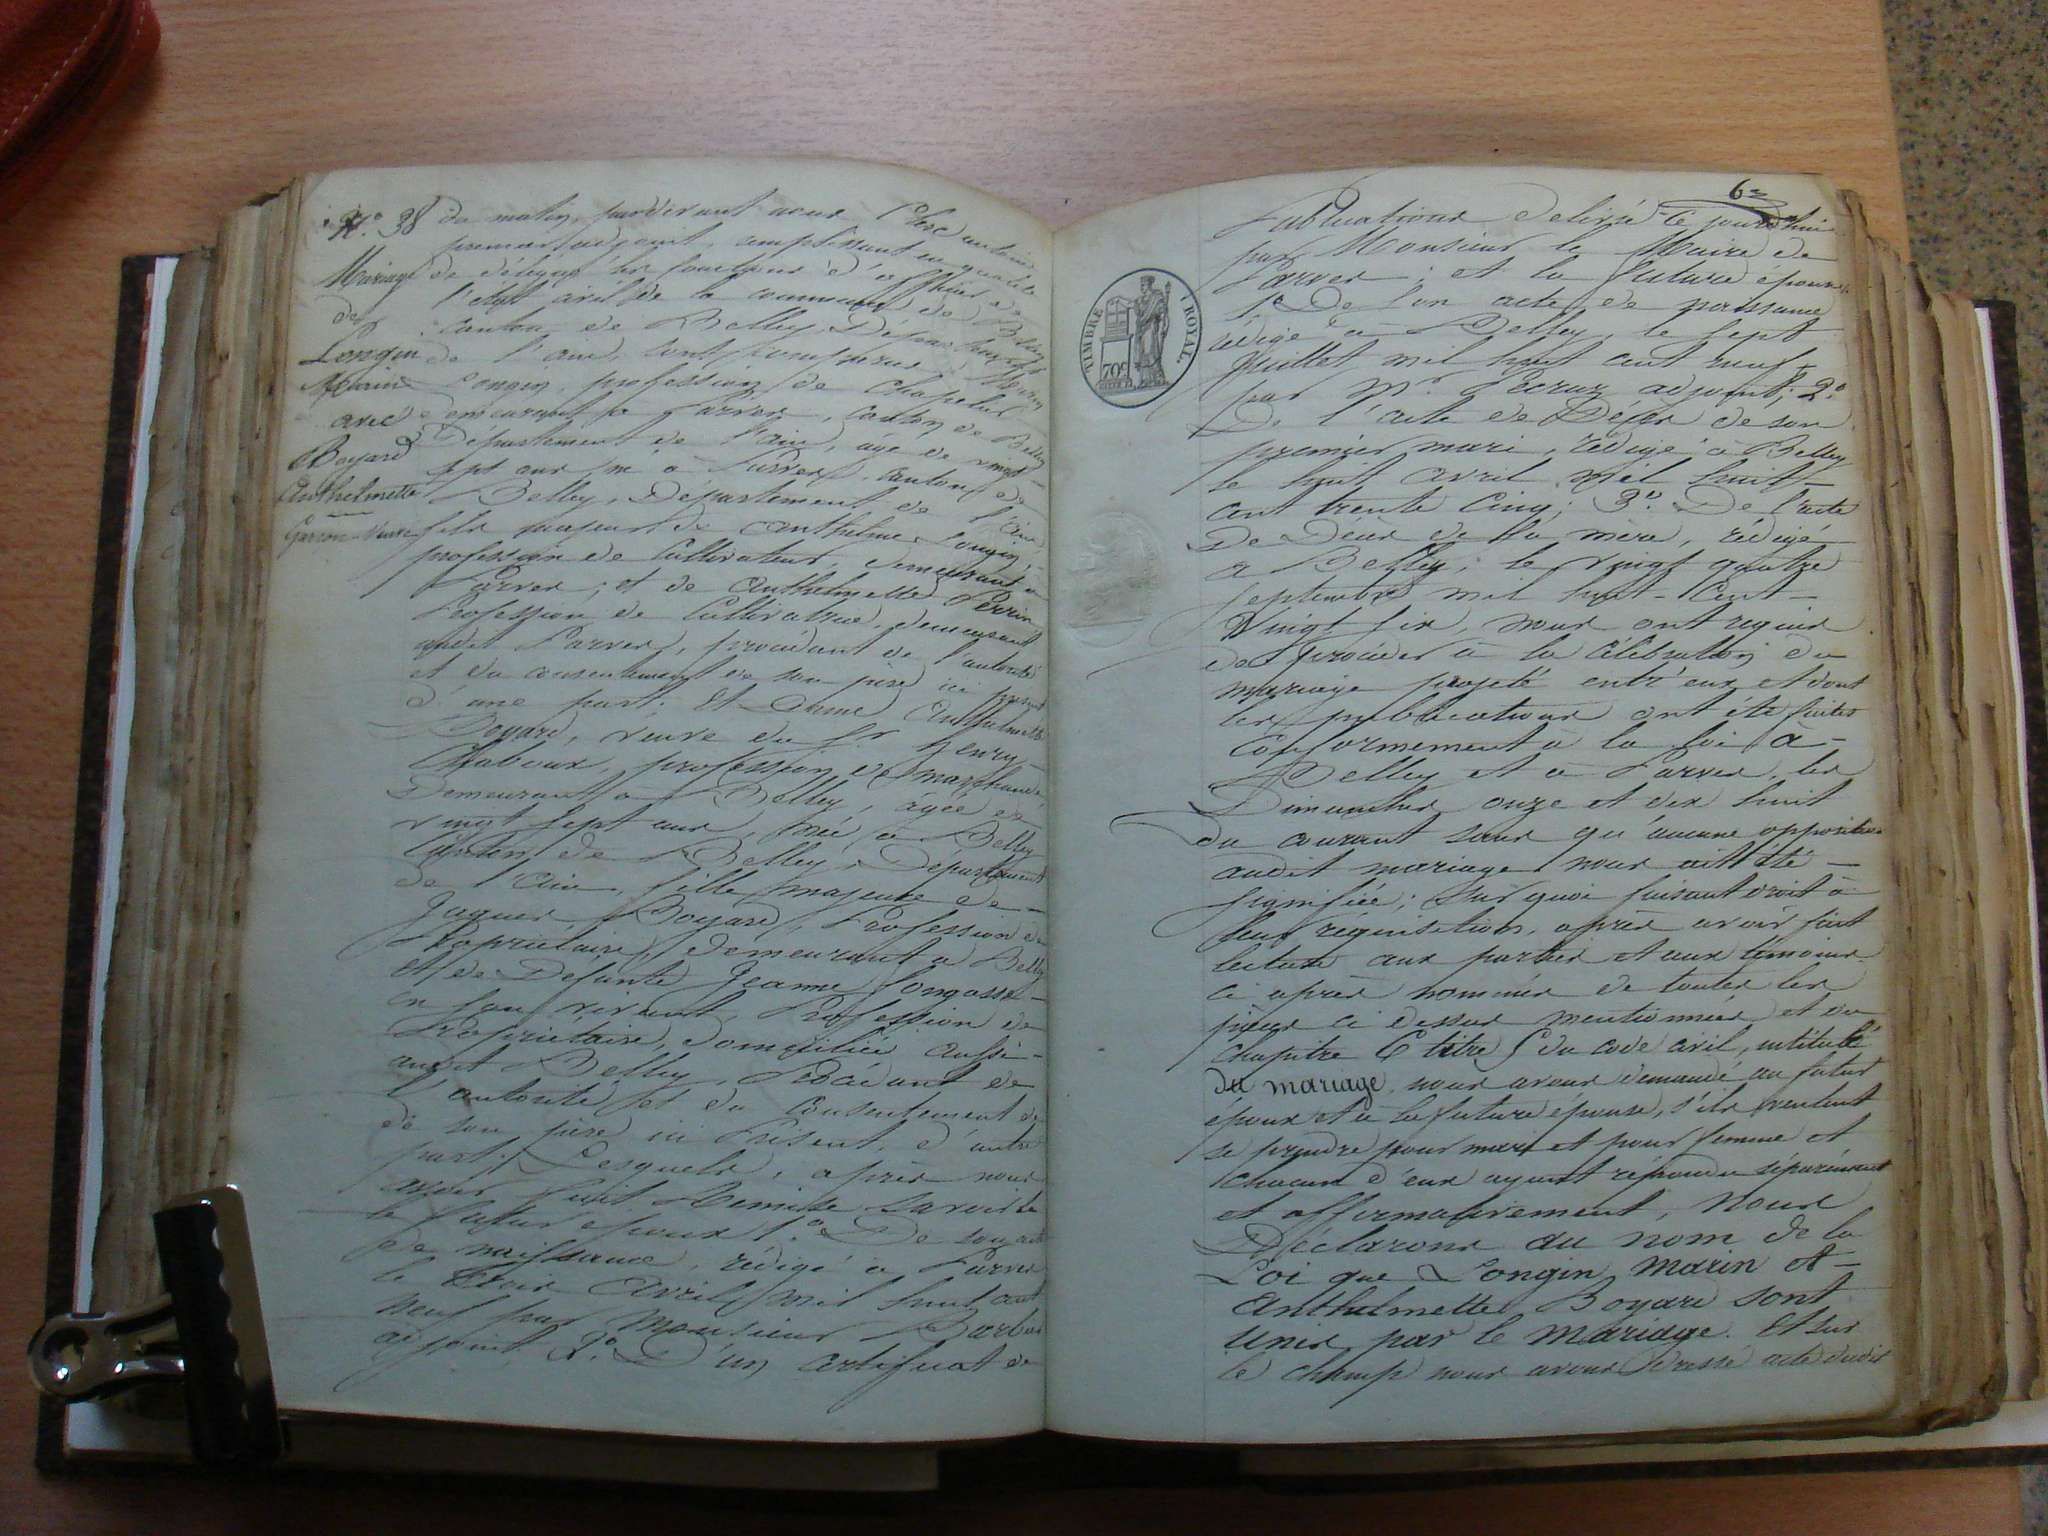 N.° 38
Mariage
de
Longin
Marin
avec
Boyard
Anthelmette
Garçon - Veuve
du matin, pardevant nous
premier adjoint, remplissant en qualité
de délégué les fonctions d'officier de
l'état civil de la commune de Belley
Canton de Belley, Département
de l'ain, sont comparus Marin
Longin, profession de Chapelier
demeurant à Parves, Canton de Belley
Département de l'ain, âgé de vingt-
sept ans né à Parves, canton de
Belley, Département de l'ain
fils majeur de Anthelme Longin,
profession de Cultivateur, demeurant à
Parves ; et de Anthelmette Perrin
Profession de Cultivatrice, demeurant
audit Parves, procédant de l'autorité
et du consentement de son père ici présent
d'une part. Et Dame Anthelmette
Boyard, veuve du Sr. henry
Chaboux, profession de marchande,
Demeurant à Belley, âgée de
vingt sept ans, née à Belley
Canton de Belley, Département
de l'Ain, fille majeure de
Jaques Boyard, Profession de
Propriétaire, demeurant à Belley
et de Defunte Jeanne
en son vivant, Profession de
Propriétaire, domiciliée aussi
audit Belley, Procédant de
l'autorité et du consentement de
de son père ici Présent, d'autre
part; Lesquels, après nous
avoir fait Remise savoir le
le futur époux 1.° De son acte
de naissance, rédigé à Parves
le trois Avril mil huit cent
neuf par Monsieur
adjoint, 2.° D'un certificat de
6
Publications délivré ce jourd'hui
par Monsieur le Maire de
Parves ; et la future épouse
1.° De son acte de naissance
rédigé à Belley, le sept
Juillet mil huit cent neuf
par Mr. adjoint, 2.°
De l'acte de Décès de son
premier mari, rédigé à Belley
le huit avril mil huit-
cent trente cinq; 3.° De l'acte
De Décès de sa mère, rédigé
a Belley, le vingt quatre
septembre mil huit-Cent-
vingt six, nous ont requis
de procéder à la célébration du
mariage projeté entr'eux et dont
les publications ont été faites
Conformement à la loi à-
Belley et à Parves, les
Dimanches onze et dix huit
du courant sans qu'aucune opposition
audit mariage nous ait été-
signifiée; Sur quoi faisant droit à
leur réquisition, après avoir fait
lecture aux parties et aux témoins
ci après nommés de toutes les
pièces ci dessus mentionnées et du
chapitre 6 titre 5 du code civil, intitulé
Du mariage, nous avons demandé au futur
époux et à la future épouse, s'ils veulent
se prendre pour mari et pour femme et
chacun d'eux ayant répondu séparément
et affirmativement, Nous
Déclarons au nom de la
Loi que Longin Marin et-
Anthelmette Boyard sont
unis par le mariage. Et sur
le champ nous avons dressé acte dudit
TIMBRE ROYAL.
70c